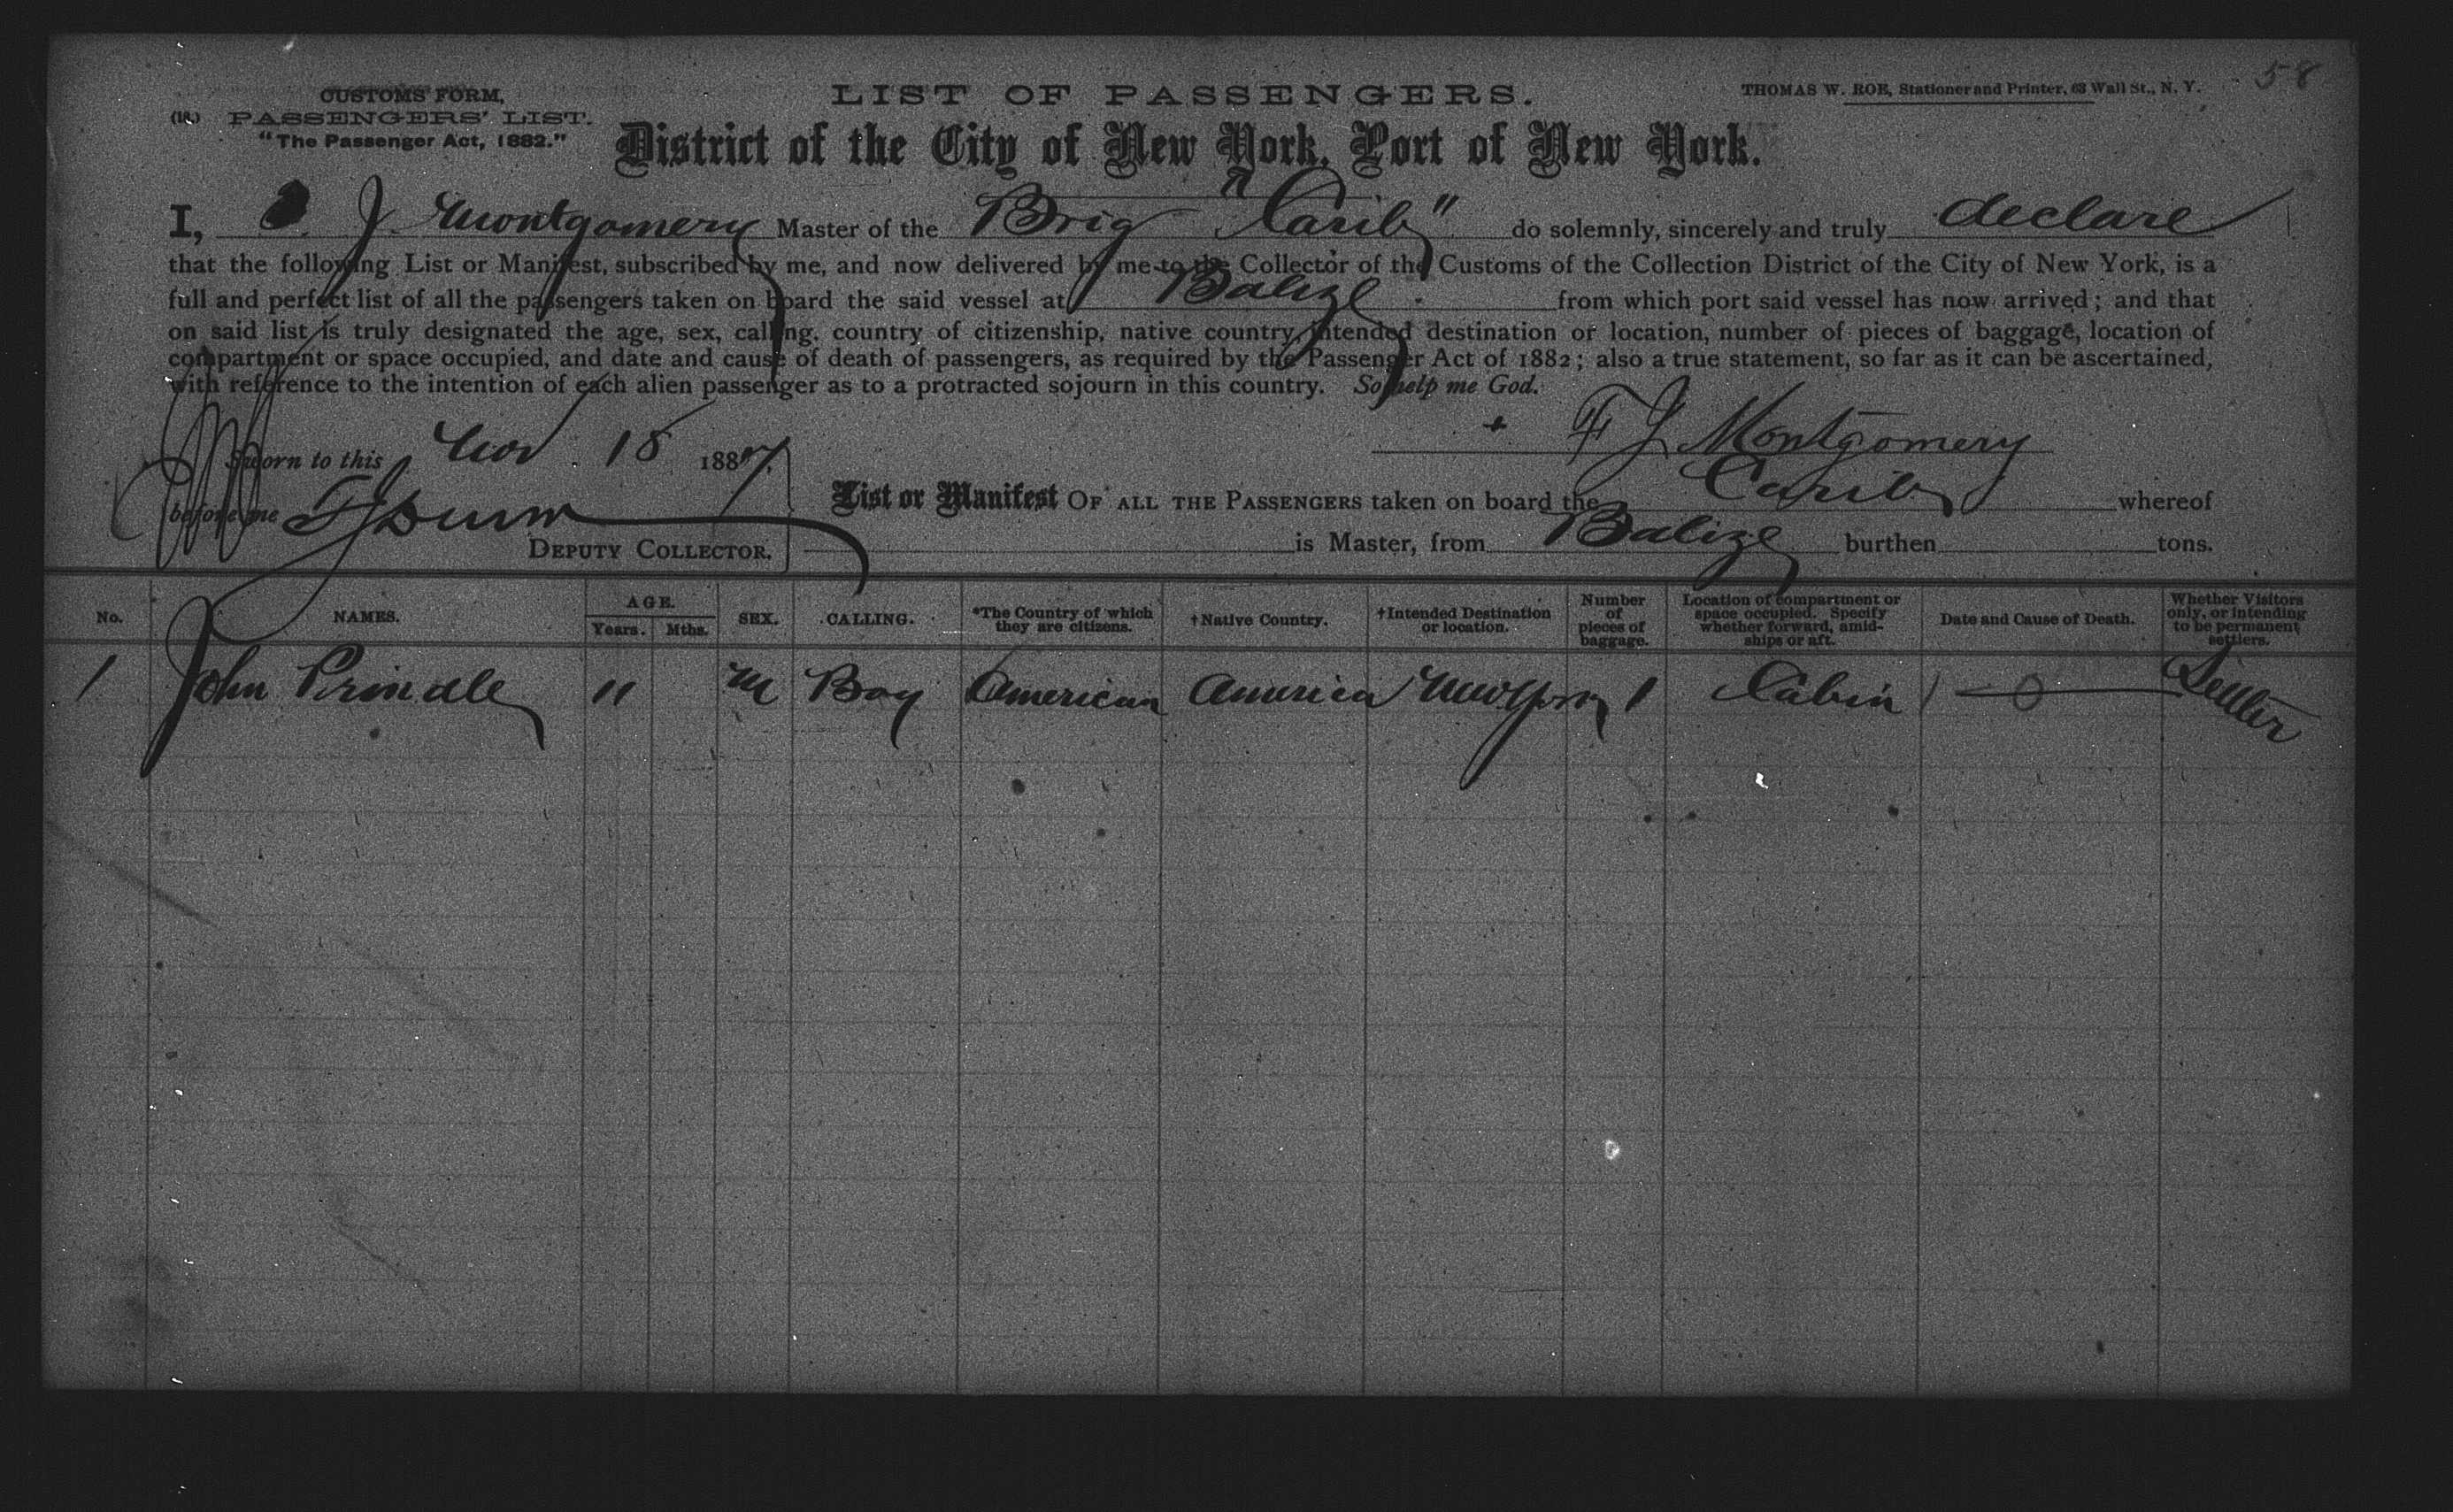 58
CUSTOMS FORM,
(18.) PASSENGERS' LIST.
"The Passenger Act, 1882."
LIST OF PASSENGERS.
THOMAS W. ROE, Stationer and Printer, 63 Wall St., N. Y.
District of the City of New York, Port of New York.
I, J Montgomery Master of the Brig "Carib" do solemnly, sincerely and truly declare
that the following List or Manifest, subscribed by me, and now delivered by me to the Collector of the Customs of the Collection District of the City of New York, is a
full and perfect list of all the passengers taken on board the said vessel at Balize from which port said vessel has now arrived; and that
on said list is truly designated the age, sex, calling, country of citizenship, native country, intended destination or location, number of pieces of baggage, location of
compartment or space occupied, and date and cause of death of passengers, as required by the Passenger Act of 1882; also a true statement, so far as it can be ascertained,
with reference to the intention of each alien passenger as to a protracted sojourn in this country. So help me God.
F J Montgomery
Sworn to this Nov 18 1887,
before me
DEPUTY COLLECTOR.
List or Manifest OF ALL THE PASSENGERS taken on board the Carib whereof
is Master, from Balize burthen tons.
No. NAMES. AGE. Years. Mths. SEX. CALLING. *The Country of which they are citizens. †Native Country. †Intended Destination or location. Number of pieces of baggage. Location of compartment or space occupied. Specify whether forward, amidships or aft. Date and Cause of Death. Whether Visitors only, or intending to be permanent settlers.
1 John Prindle 11 M Boy American America New York 1 Cabin 0 Settler